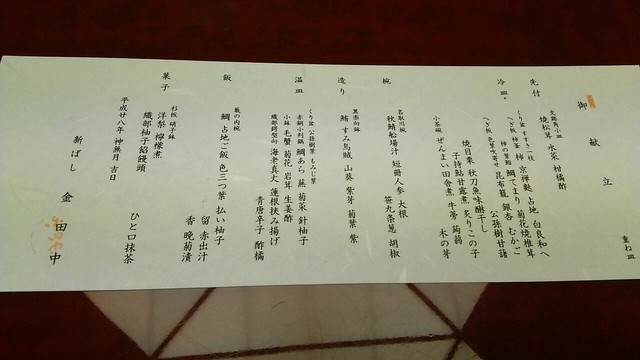 御献立
重ね皿
先付
交趾角小皿
焼松茸 水菜 柑橘酢
くり盆 すすき一枝
柿 京禅麩 占地 白良和へ
へぎ板 柿茶
菊花 焼椎茸
柿の葉鮨 鯛 てまり
冷皿
へぎ板 色葉吹寄せ
昆布籠 銀杏 むかご
公孫樹甘藷
焼目栗 秋刀魚味醂干し
子持鮎甘露煮 炙りこの子
小茶碗
ぜんまい田舎煮 牛蒡 蒟蒻
木の芽
椀
名取川椀
秋鯖船場汁 短冊人参 大根
笹九条葱 胡椒
造り
黒楽向鉢
鮪 すみ烏賊 山葵 紫芽 菊葉 紫
温皿
くり盆 公孫樹 もみじ葉
赤銅小判鍋
鯛あら 蕪 菊菜 針柚子
小鉢
毛蟹 菊花 岩茸 生姜酢
織部鍔型向
海老真丈 蓮根挟み揚げ
青唐辛子 酢橘
飯
藪の内椀
鯛 占地ご飯 色三つ葉 払い柚子
留 赤出汁
香 晩菊漬
菓子
杉板 硝子鉢
洋梨 檸檬煮
織部柚子餡饅頭
ひと口抹茶
平成廿八年 神無月 吉日
新ばし 金田中